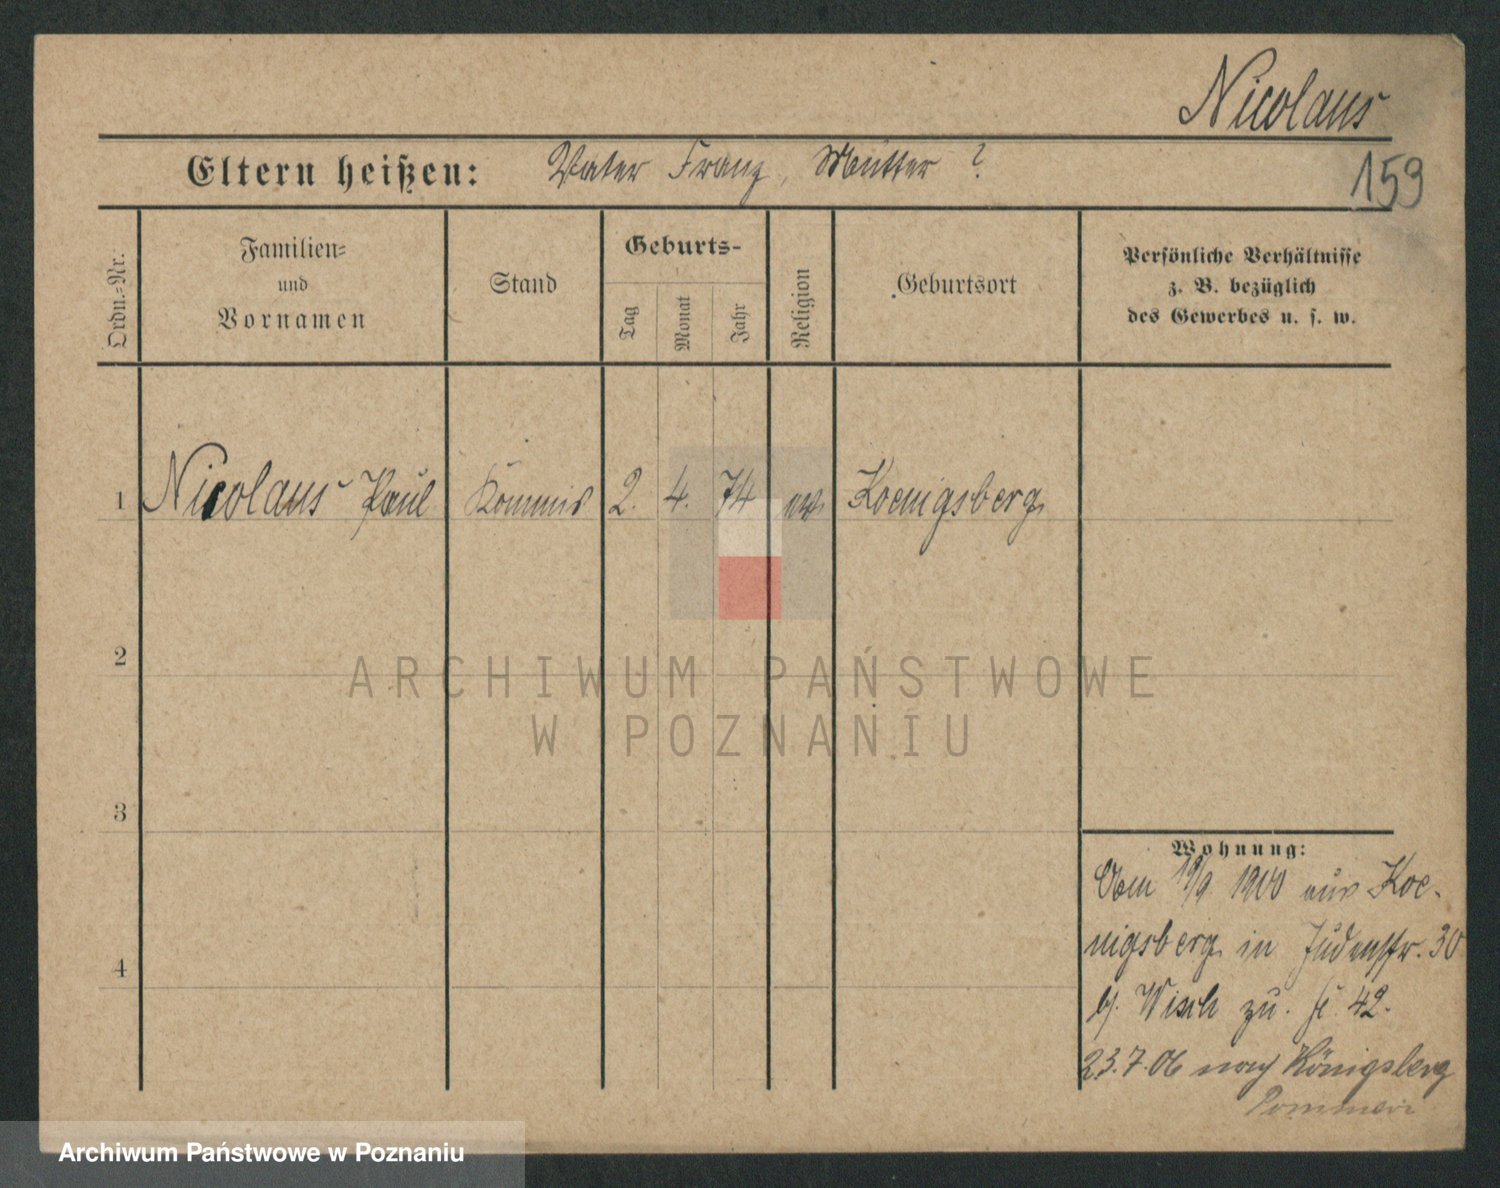 Nicolaus
Eltern heißen: Vater Franz, Mutter ?
159
Ordn.=Nr.
Familien=
und
Vornamen
Stand
Geburts-
Tag
Monat
Jahr
Religion
Geburtsort
Persönliche Verhältnisse
z. B. bezüglich
des Gewerbes u. s. w.
1 Nicolaus Paul Kommis 2. 4. 74 ev. Koenigsberg
2
3
4
Wohnung:
19/9 1900 aus Koe-
nigsberg in Judenstr. 30
b/. Wisch zu. 42.
23.7.06 nach Königsberg
ARCHIWUM PAŃSTWOWE
W POZNANIU
Archiwum Państwowe w Poznaniu